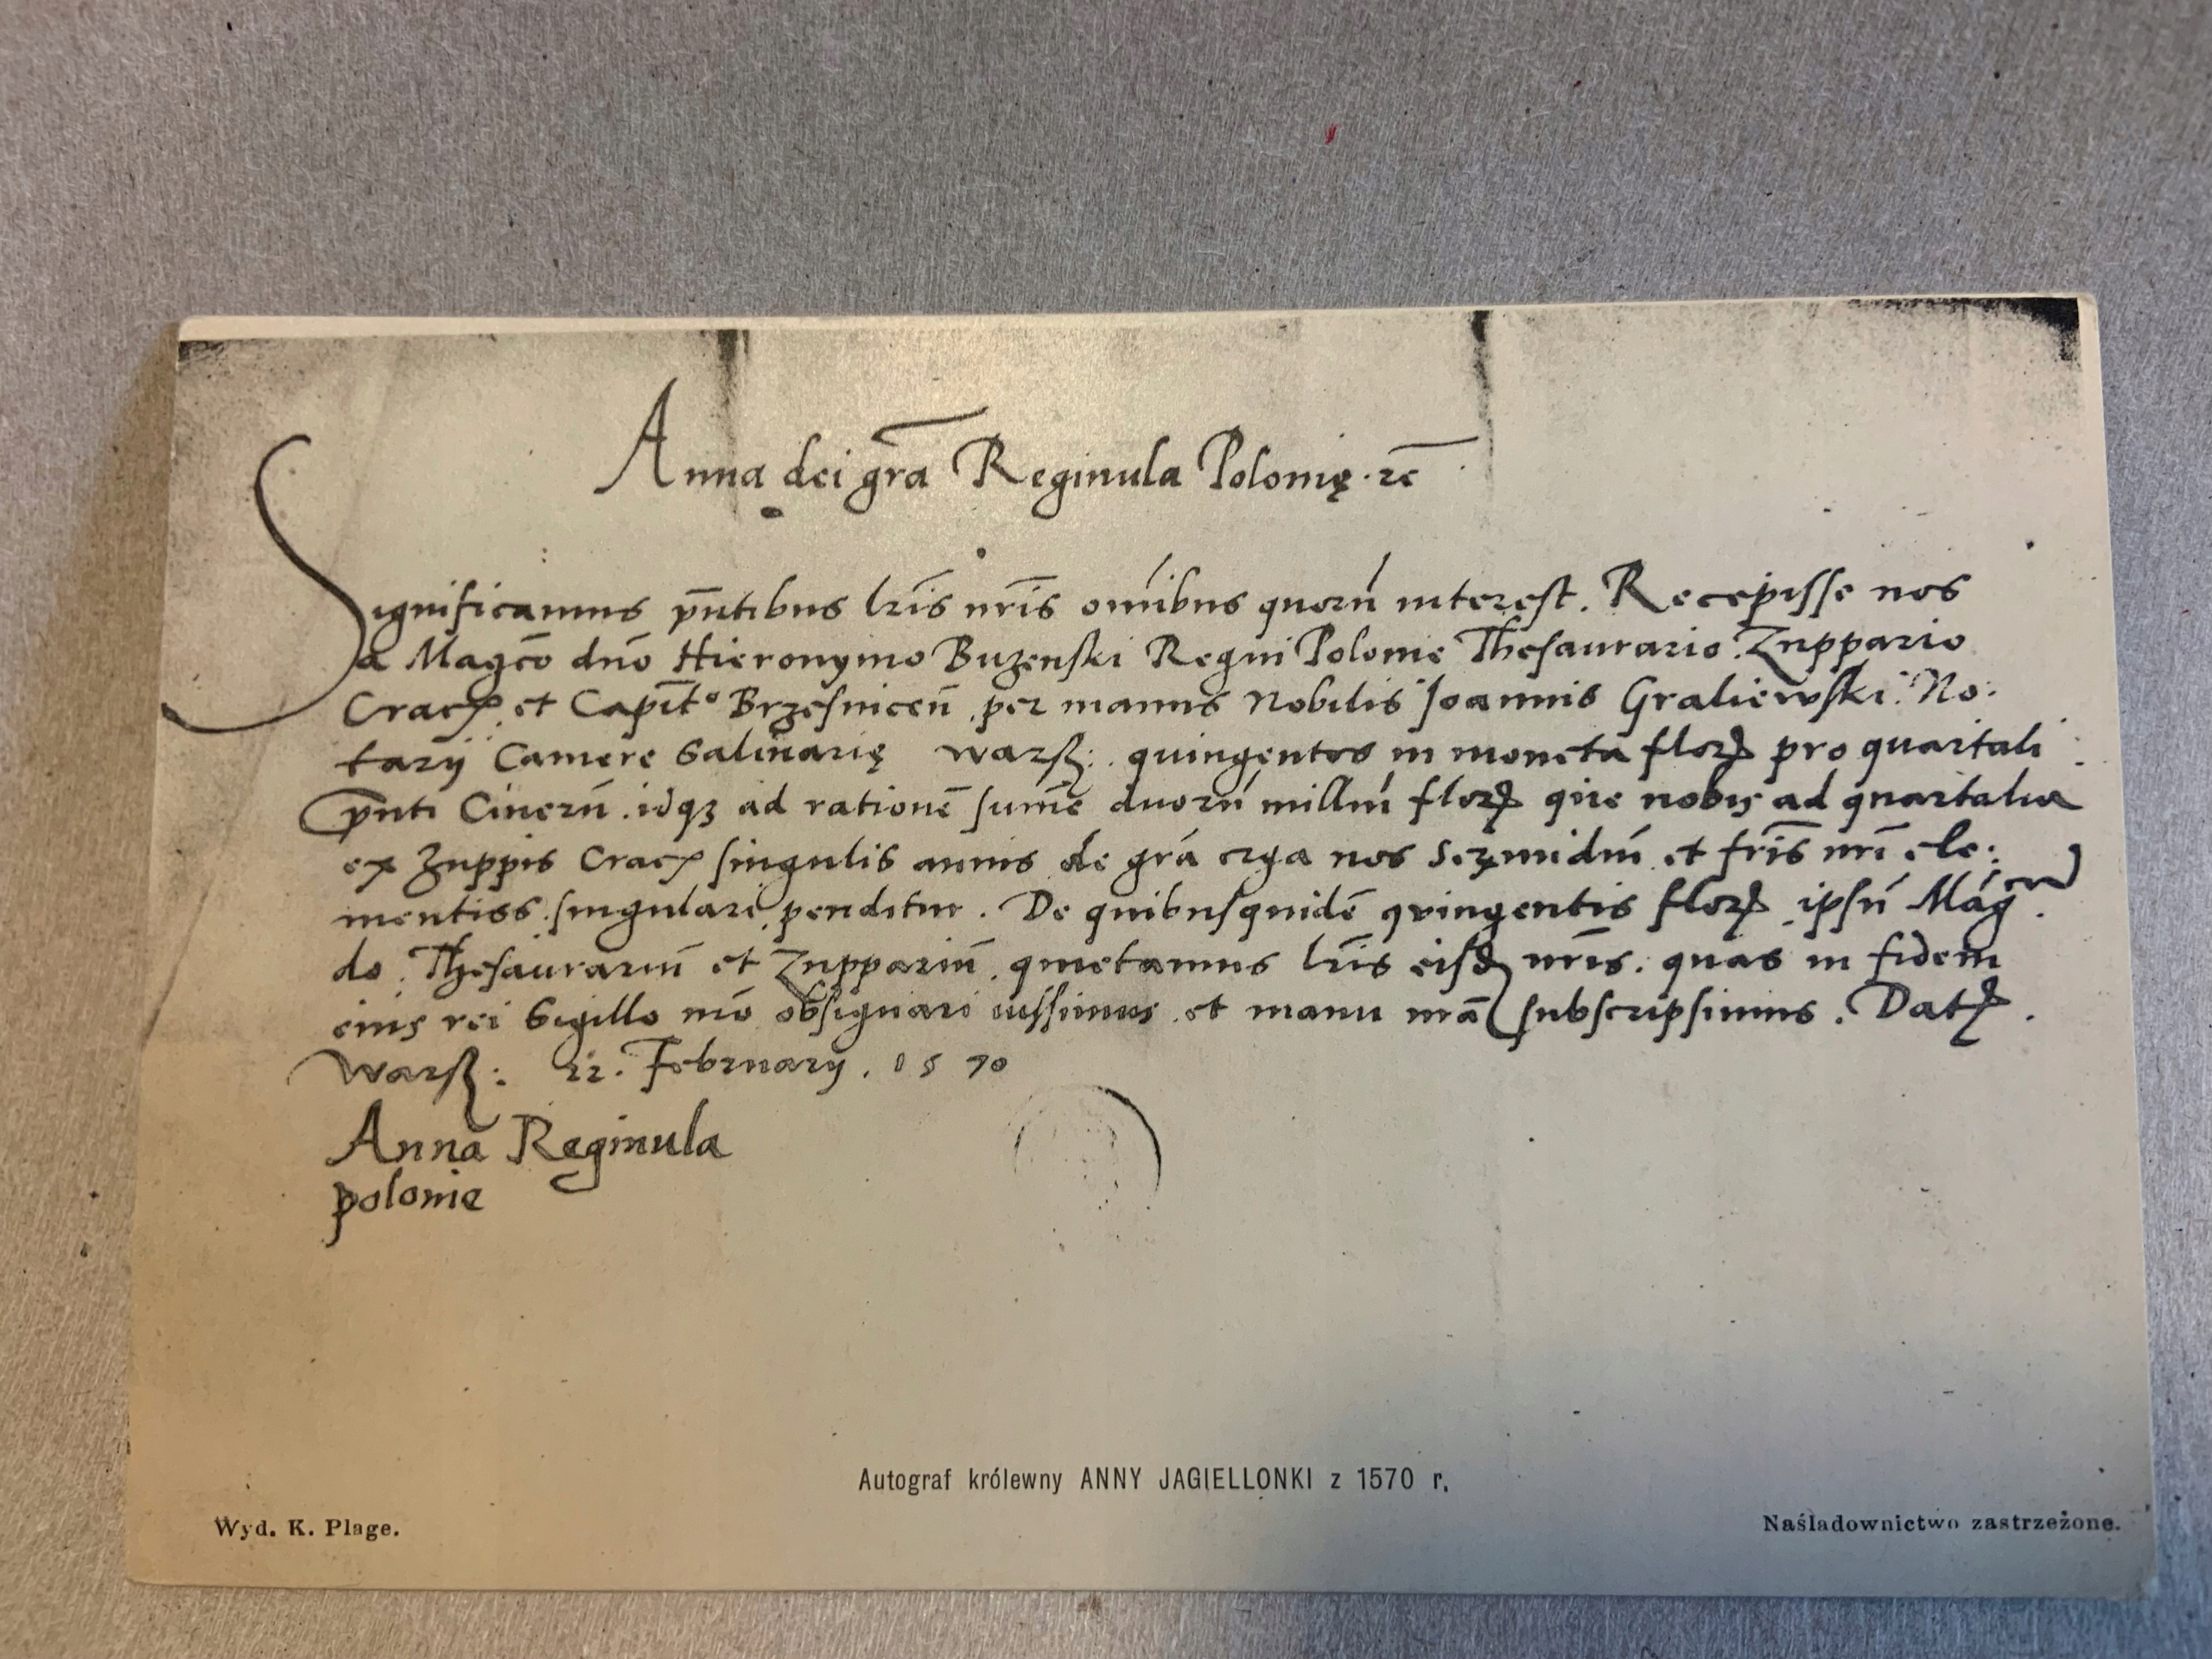 Anna dei gr̄a Reginula Polonię. ꝛc̄
Significamus p̄ntibus lr̄is nr̄is om̄ibus quorū interest. Recepisse nos
a Mag̃co dn̄o Hieronymo Buzenski Regni Polonie Thesaurario. Zuppario
Crac. et Capit° Brzesnicen̄. per manus Nobilis Joannis Graliewski. No:
tarÿ Camere Salinarię Warß: quingentos in moneta flor pro quartali
p̄nti Cinerū. idqꝫ ad rationē sum̄e duorū milliū flor que nobis ad quartalia
ex Zuppis Crac singulis annis de gr̄a erga nos ser̄midnī et fr̄is nr̄i cle:
mentiss. singulari penditur. De quibusquidē quingentis flor ipsū Mag
do. Thesaurariū et Zuppariū. quietamus lr̄is eisd nr̄is. quas in fidem
eius rei Sigillo nr̄o obsignari iussimus et manu nr̄a subscripsimus. Dat.
Warß: 22. Februarÿ. 1570
Anna Reginula
polonie
Autograf królewny ANNY JAGIELLONKI z 1570 r.
Wyd. K. Plage.
Naśladownictwo zastrzeżone.